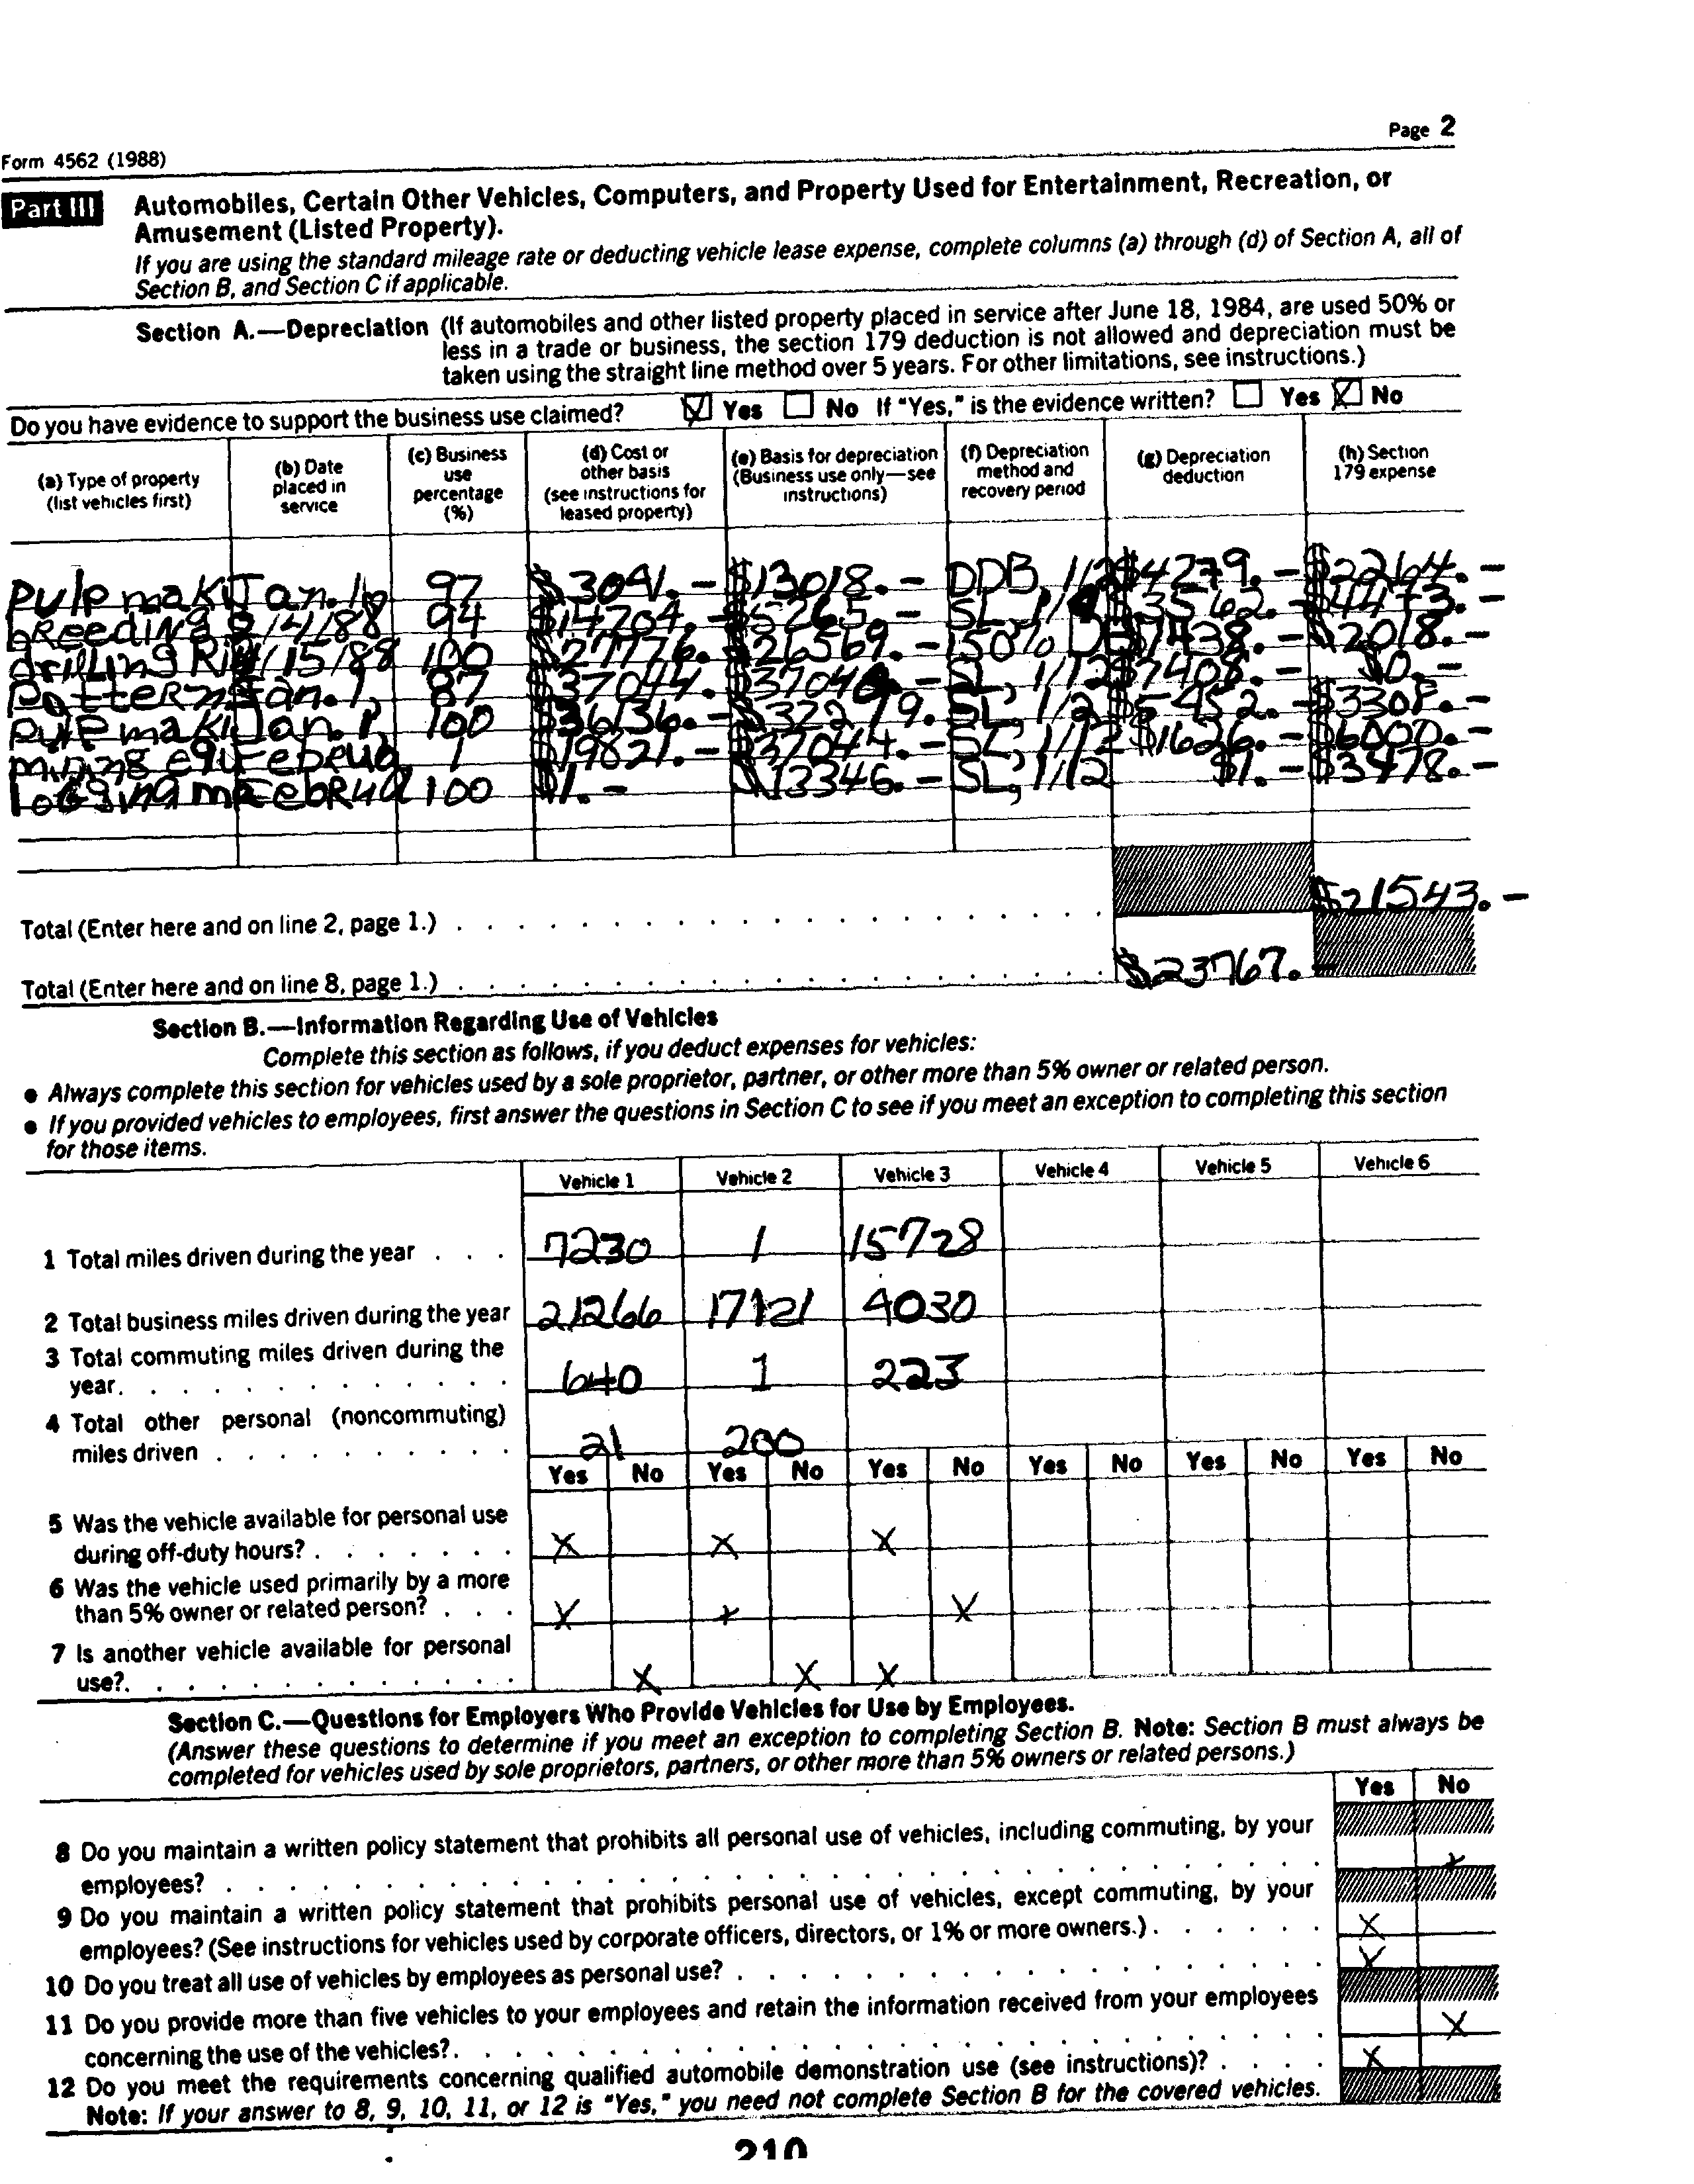 Page 2
Form 4562 (1988)
Part III Automobiles, Certain Other Vehicles, Computers, and Property Used for Entertainment, Recreation, or
Amusement (Listed Property).
If you are using the standard mileage rate or deducting vehicle lease expense, complete columns (a) through (d) of Section A, all of
Section B, and Section C if applicable.
Section A.—Depreciation (If automobiles and other listed property placed in service after June 18, 1984, are used 50% or
less in a trade or business, the section 179 deduction is not allowed and depreciation must be
taken using the straight line method over 5 years. For other limitations, see instructions.)
Do you have evidence to support the business use claimed? Yes No If "Yes," is the evidence written? Yes No
(a) Type of property (list vehicles first)
(b) Date placed in service
(c) Business use percentage (%)
(d) Cost or other basis (see instructions for leased property)
(e) Basis for depreciation (Business use only—see instructions)
(f) Depreciation method and recovery period
(g) Depreciation deduction
(h) Section 179 expense
pulp maki Jan. 1, 97 $3091.- $13018.- DDB, 1/2 $4279.- $2264.-
breeding 2/4/88 94 $14704.- $5265.- SL, $3562.- $4473.-
drilling Ri 4/15/88 100 $27776. $26569.- 150% $7438.- $2018.-
Pattern Jan. 1, 87 $37044. SL, 1/12 $7408.- $0.-
pulp maki Jan. 1, 100 $36136.- $32279. SL, 1/2 $5452.- $3308.-
mining equ Februa 1 $19821.- $37044.- SL, 1/12 $1626.- $6000.-
logging ma Februa 100 $1.- $13346.- SL, 1/12 $1.- $3478.-
$21543.-
Total (Enter here and on line 2, page 1.)
$23767.-
Total (Enter here and on line 8, page 1.)
Section B.—Information Regarding Use of Vehicles
Complete this section as follows, if you deduct expenses for vehicles:
● Always complete this section for vehicles used by a sole proprietor, partner, or other more than 5% owner or related person.
● If you provided vehicles to employees, first answer the questions in Section C to see if you meet an exception to completing this section
for those items.
Vehicle 1 Vehicle 2 Vehicle 3 Vehicle 4 Vehicle 5 Vehicle 6
1 Total miles driven during the year . . . 7230 1 15728
2 Total business miles driven during the year 21266 17121 4030
3 Total commuting miles driven during the
year. 640 1 223
4 Total other personal (noncommuting)
miles driven 21 200
Yes No Yes No Yes No Yes No Yes No Yes No
5 Was the vehicle available for personal use
during off-duty hours? X X X
6 Was the vehicle used primarily by a more
than 5% owner or related person? X X X
7 Is another vehicle available for personal
use? X X X
Section C.—Questions for Employers Who Provide Vehicles for Use by Employees.
(Answer these questions to determine if you meet an exception to completing Section B. Note: Section B must always be
completed for vehicles used by sole proprietors, partners, or other more than 5% owners or related persons.)
Yes No
8 Do you maintain a written policy statement that prohibits all personal use of vehicles, including commuting, by your
employees? X
9 Do you maintain a written policy statement that prohibits personal use of vehicles, except commuting, by your
employees? (See instructions for vehicles used by corporate officers, directors, or 1% or more owners.) X
10 Do you treat all use of vehicles by employees as personal use? X
11 Do you provide more than five vehicles to your employees and retain the information received from your employees
concerning the use of the vehicles? X
12 Do you meet the requirements concerning qualified automobile demonstration use (see instructions)? X
Note: If your answer to 8, 9, 10, 11, or 12 is "Yes," you need not complete Section B for the covered vehicles.
210